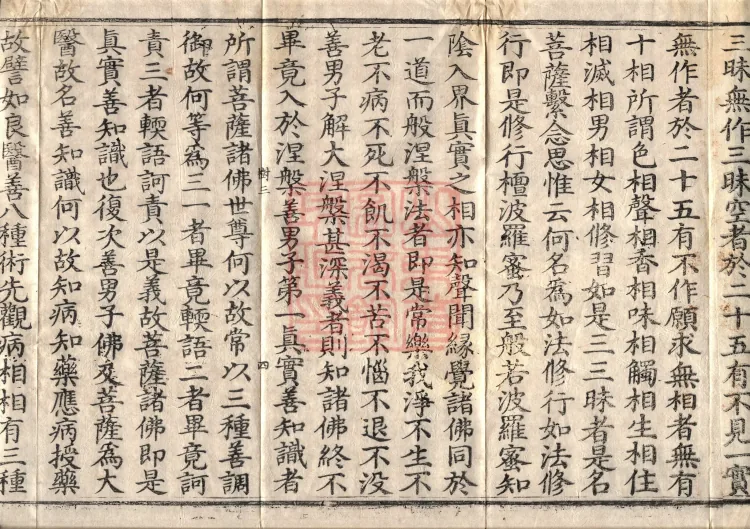 三昧無作三昧空者於二十五有不見一實
無作者於二十五有不作願求無相者無有
十相所謂色相聲相香相味相觸相生相住
相滅相男相女相修習如是三三昧者是名
菩薩繫念思惟云何名爲如法修行如法修
行即是修行檀波羅蜜乃至般若波羅蜜知
陰入界眞實之相亦知聲聞緣覺諸佛同於
一道而般涅槃法者即是常樂我淨不生不
老不病不死不飢不渴不苦不惱不退不没
善男子解大涅槃甚深義者則知諸佛終不
畢竟入於涅槃善男子第一眞實善知識者
樹三 四
所謂菩薩諸佛世尊何以故常以三種善調
御故何等爲三一者畢竟輭語二者畢竟訶
責三者輭語訶責以是義故菩薩諸佛即是
眞實善知識也復次善男子佛及菩薩爲大
醫故名善知識何以故知病知藥應病授藥
故譬如良醫善八種術先觀病相相有三種